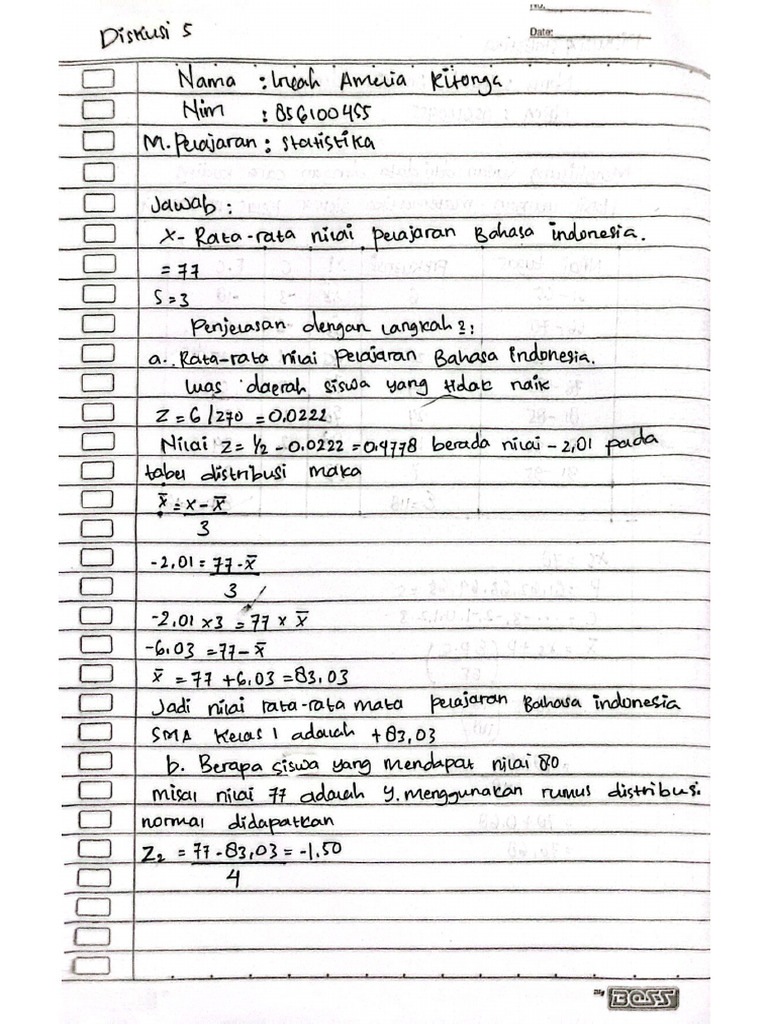 No.
Diskusi 5
Date:
Nama : Amelia Ritonga
Nim : 856100455
M. Pelajaran : Statistika
Jawab :
X - Rata-rata nilai pelajaran Bahasa indonesia.
= 77
S = 3
Penjelasan dengan langkah2 :
a. Rata-rata nilai Pelajaran Bahasa Indonesia.
Luas daerah siswa yang tidak naik
Z = 6 / 270 = 0,0222
Nilai Z = 1/2 - 0.0222 = 0.4778 berada nilai - 2,01 pada
tabel distribusi maka
x̄ = x - x̄
3
-2,01 = 77 - x̄
3
-2,01 x 3 = 77 x x̄
-6.03 = 77 - x̄
x̄ = 77 + 6,03 = 83,03
Jadi nilai rata-rata mata pelajaran Bahasa indonesia
SMA Kelas 1 adalah + 83,03
b. Berapa siswa yang mendapat nilai 80
misal nilai 77 adalah y. menggunakan rumus distribusi
normal didapatkan
Z₂ = 77 - 83,03 = -1.50
4
BOSS